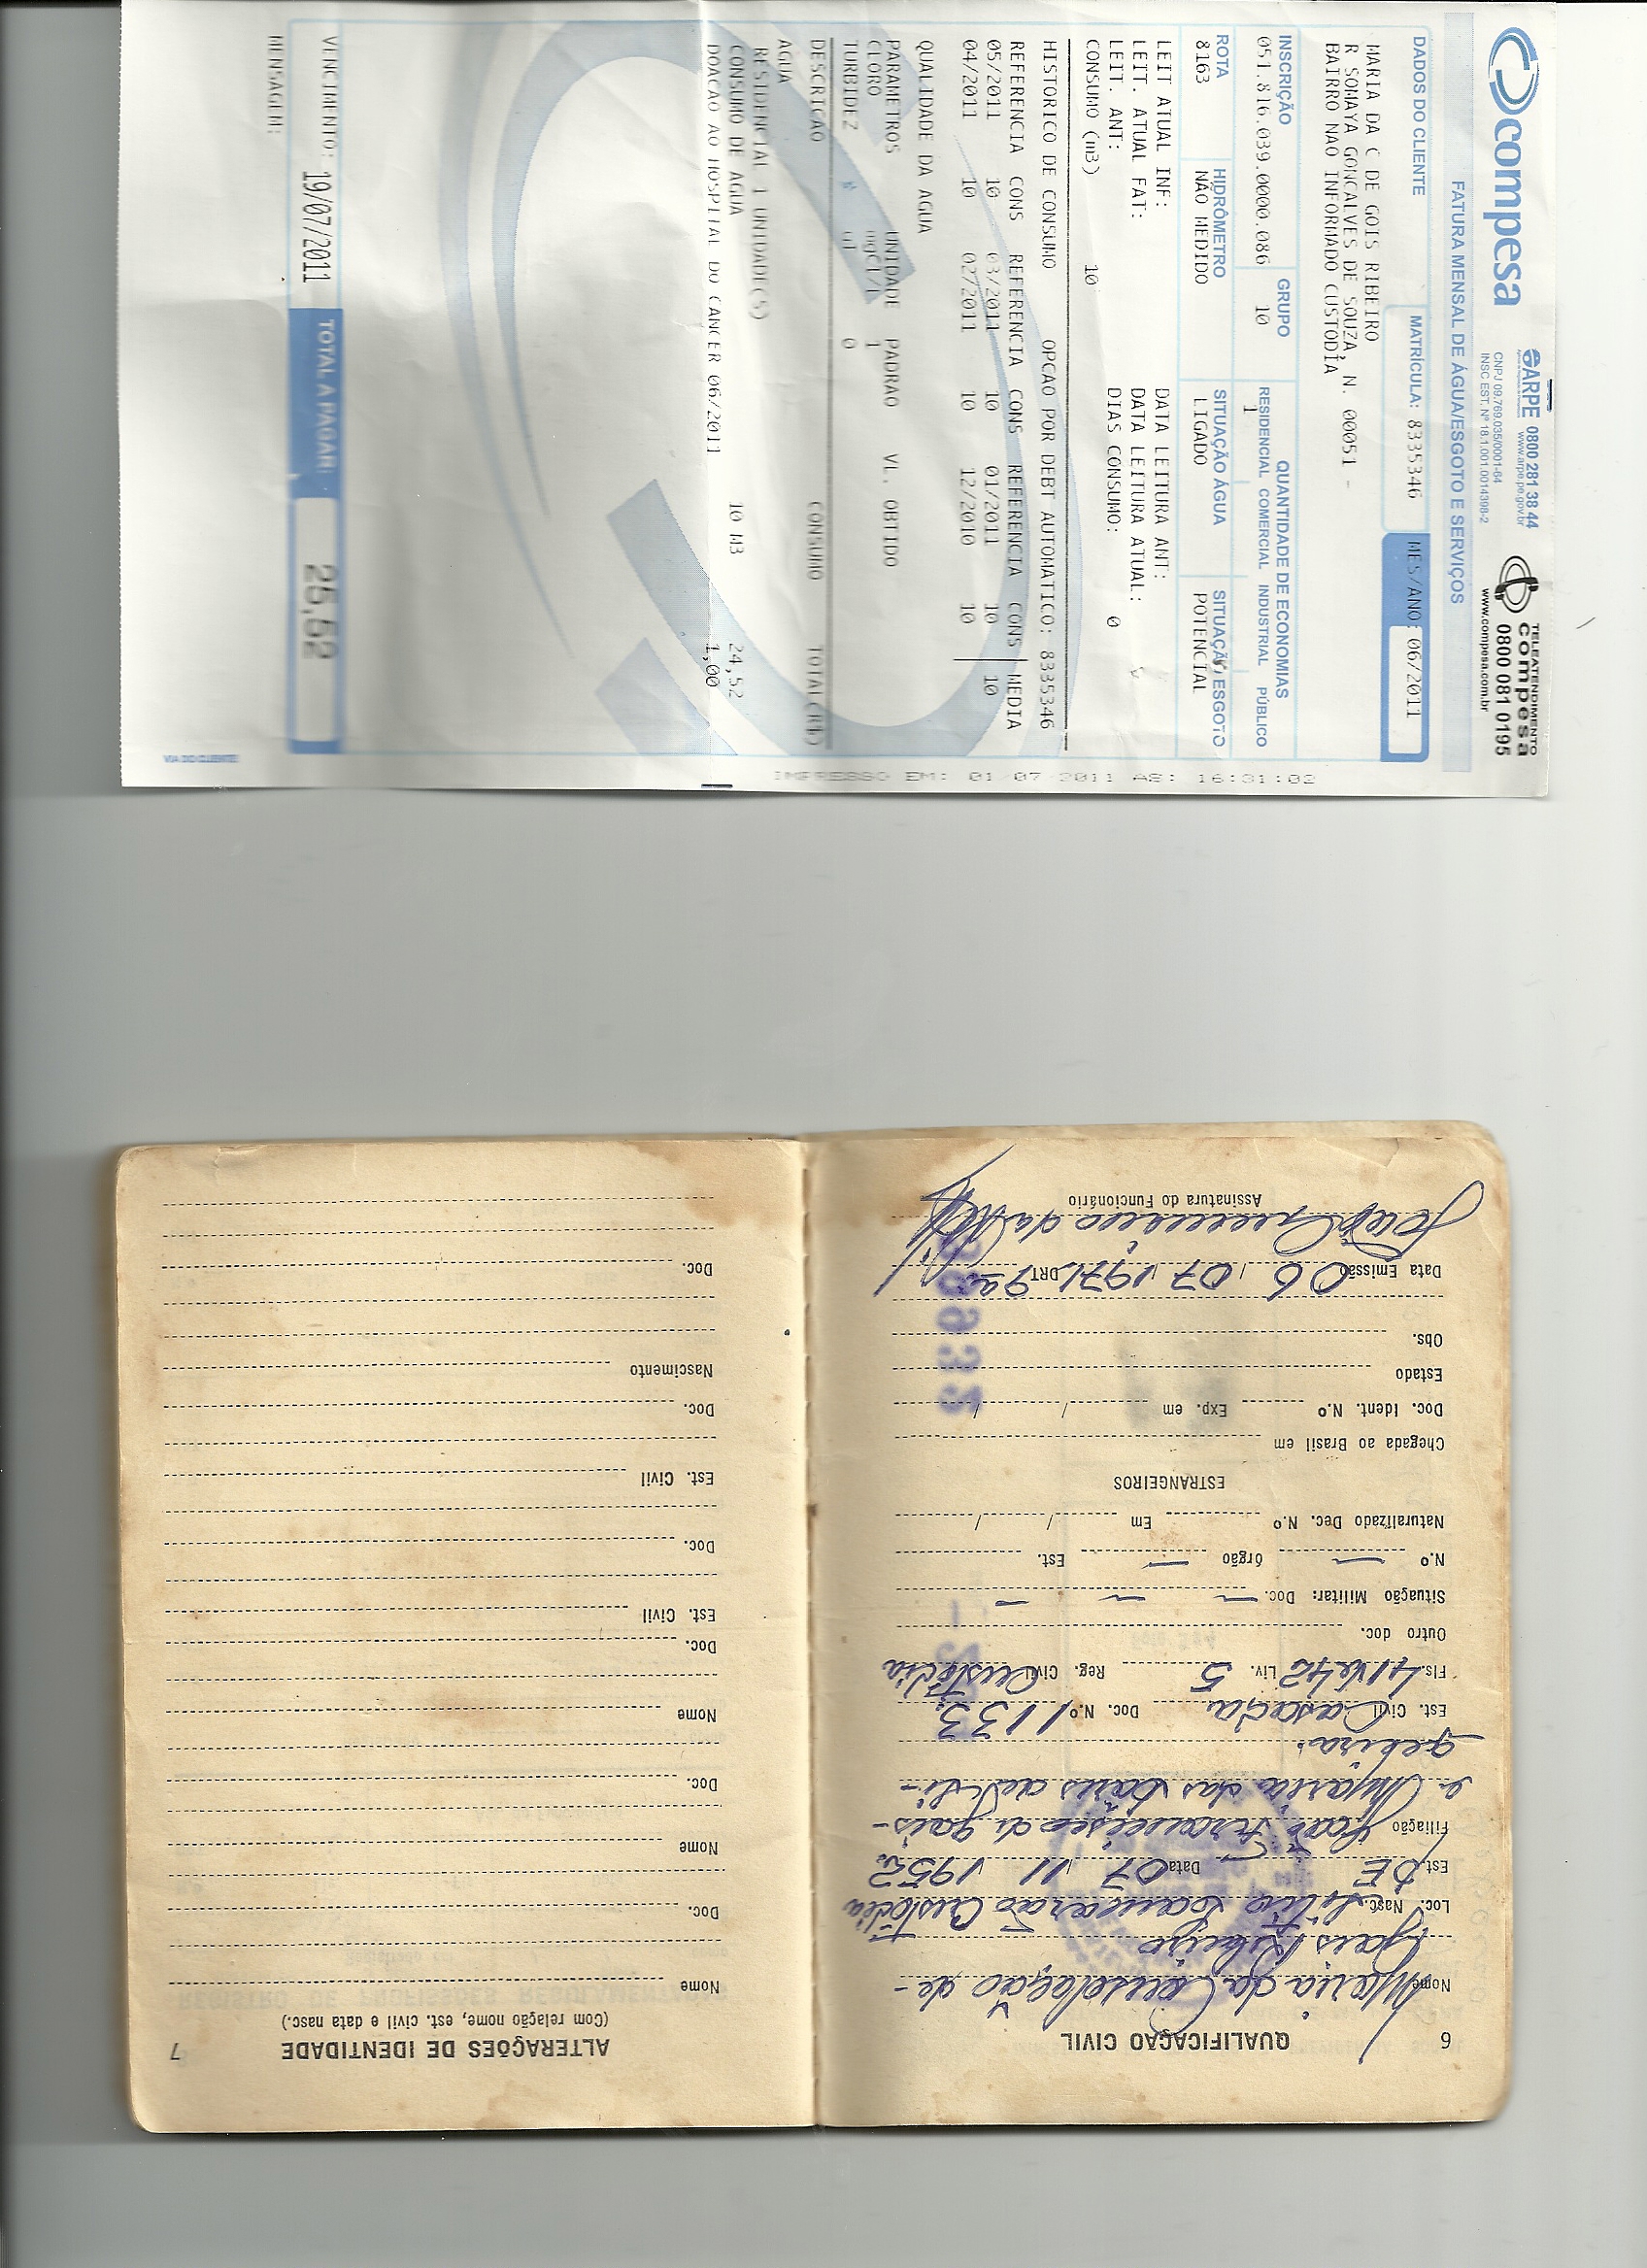 compesa
ARPE 0800 281 38 44
www.arpe.pe.gov.br
CNPJ 09.769.035/0001-64
INSC EST. Nº 18.1.001.0014398-2
TELEATENDIMENTO
compesa
0800 081 0195
www.compesa.com.br
FATURA MENSAL DE ÁGUA/ESGOTO E SERVIÇOS
DADOS DO CLIENTE
MATRÍCULA: 8335346
MES/ANO: 06/2011
MARIA DA C DE GOIS RIBEIRO
R SOMAYA GONCALVES DE SOUZA, N. 00051 -
BAIRRO NAO INFORMADO CUSTODIA
INSCRIÇÃO GRUPO QUANTIDADE DE ECONOMIAS
RESIDENCIAL COMERCIAL INDUSTRIAL PÚBLICO
051.816.039.0000.086 10 1
ROTA HIDRÔMETRO SITUAÇÃO ÁGUA SITUAÇÃO ESGOTO
8163 NÃO MEDIDO LIGADO POTENCIAL
LEIT ATUAL INF: DATA LEITURA ANT:
LEIT. ATUAL FAT: DATA LEITURA ATUAL:
LEIT. ANT: DIAS CONSUMO: 0
CONSUMO (m3) 10
HISTORICO DE CONSUMO OPCAO POR DEBT AUTOMATICO: 8335346
REFERENCIA CONS REFERENCIA CONS REFERENCIA CONS MEDIA
05/2011 10 03/2011 10 01/2011 10 10
04/2011 10 02/2011 10 12/2010 10
QUALIDADE DA AGUA
PARAMETROS UNIDADE PADRAO VL. OBTIDO
CLORO mgCl/l 1
TURBIDEZ ut 0
DESCRICAO CONSUMO TOTAL(R$)
AGUA
RESIDENCIAL 1 UNIDADE(S)
CONSUMO DE AGUA 10 M3 24,52
DOACAO AO HOSPITAL DO CANCER 06/2011 1,00
VENCIMENTO: 19/07/2011 TOTAL A PAGAR: 25,52
MENSAGEM:
VIA DO CLIENTE
IMPRESSO EM: 01/07/2011 AS: 16:31:02
6 QUALIFICAÇÃO CIVIL
Nome Maria da Consolação de
Gois Ribeiro
Loc. Nasc. Sítio Custódia
Est. PE Data 07 11 1952
Filiação João Francisco de Gois
e Maria das Dores de Si-
queira.
Est. Civil Casada Doc. N.º 1133
Fls. 41Ve42 Liv. 5 Reg. Civil Custódia
Outro doc.
Situação Militar: Doc. — — —
N.º — órgão — Est.
Naturalizado Dec. N.º Em / /
ESTRANGEIROS
Chegada ao Brasil em
Doc. Ident. N.º Exp. em / /
Estado
Obs.
Data Emissão 06 / 07 / 1971 DRT 9a
Assinatura do Funcionário
ALTERAÇÕES DE IDENTIDADE 7
(Com relação nome, est. civil e data nasc.)
Nome
Doc.
Nome
Doc.
Nome
Doc.
Est. Civil
Doc.
Est. Civil
Doc.
Nascimento
Doc.